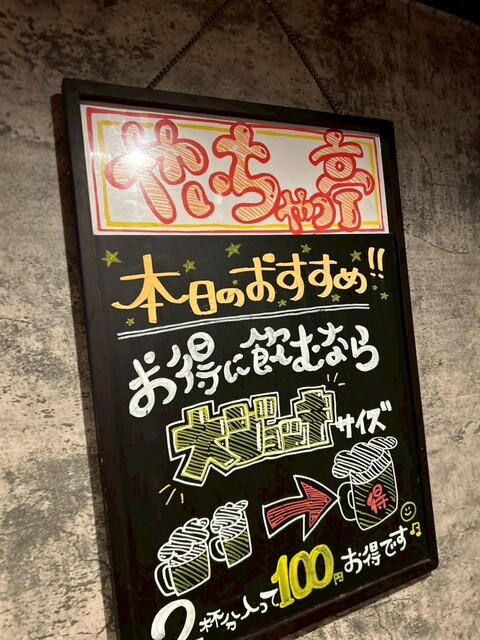 やいちゃつ亭
本日のおすすめ!!
お得に飲むなら
大ジョッキサイズ
得
2杯分入って100円お得です♫